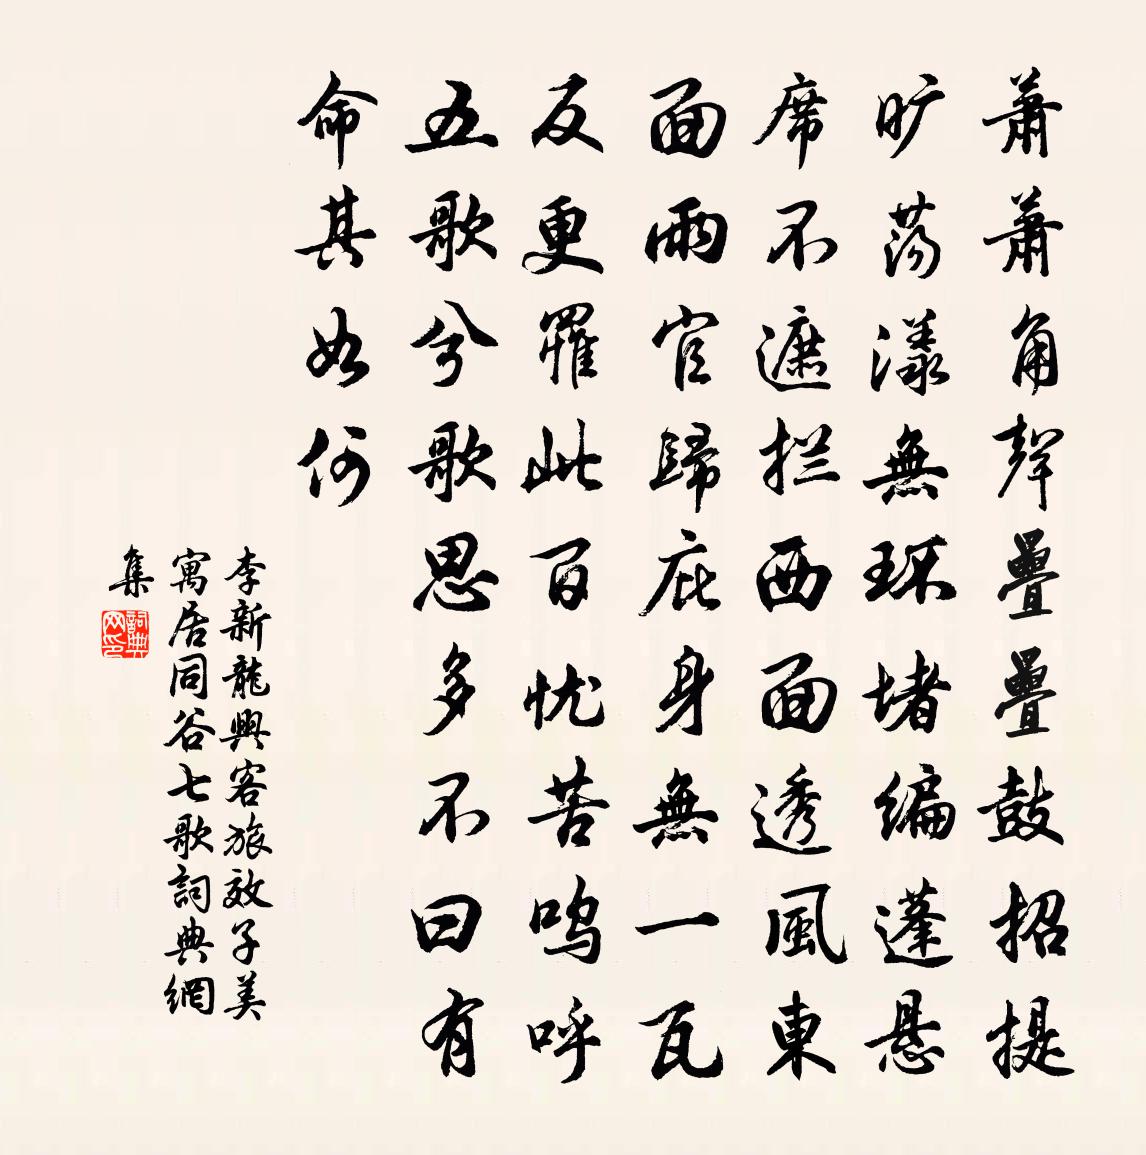 蕭蕭角聲疊疊鼓招提
旷荡漾無环堵编蓬悬
席不遮拦西面透風東
面雨官歸庇身無一瓦
反更罹此百忧苦呜呼
五歌兮歌思多不曰有
命其如何
李新龍興客旅效子美
寓居同谷七歌詞典網
集
詞典
网印